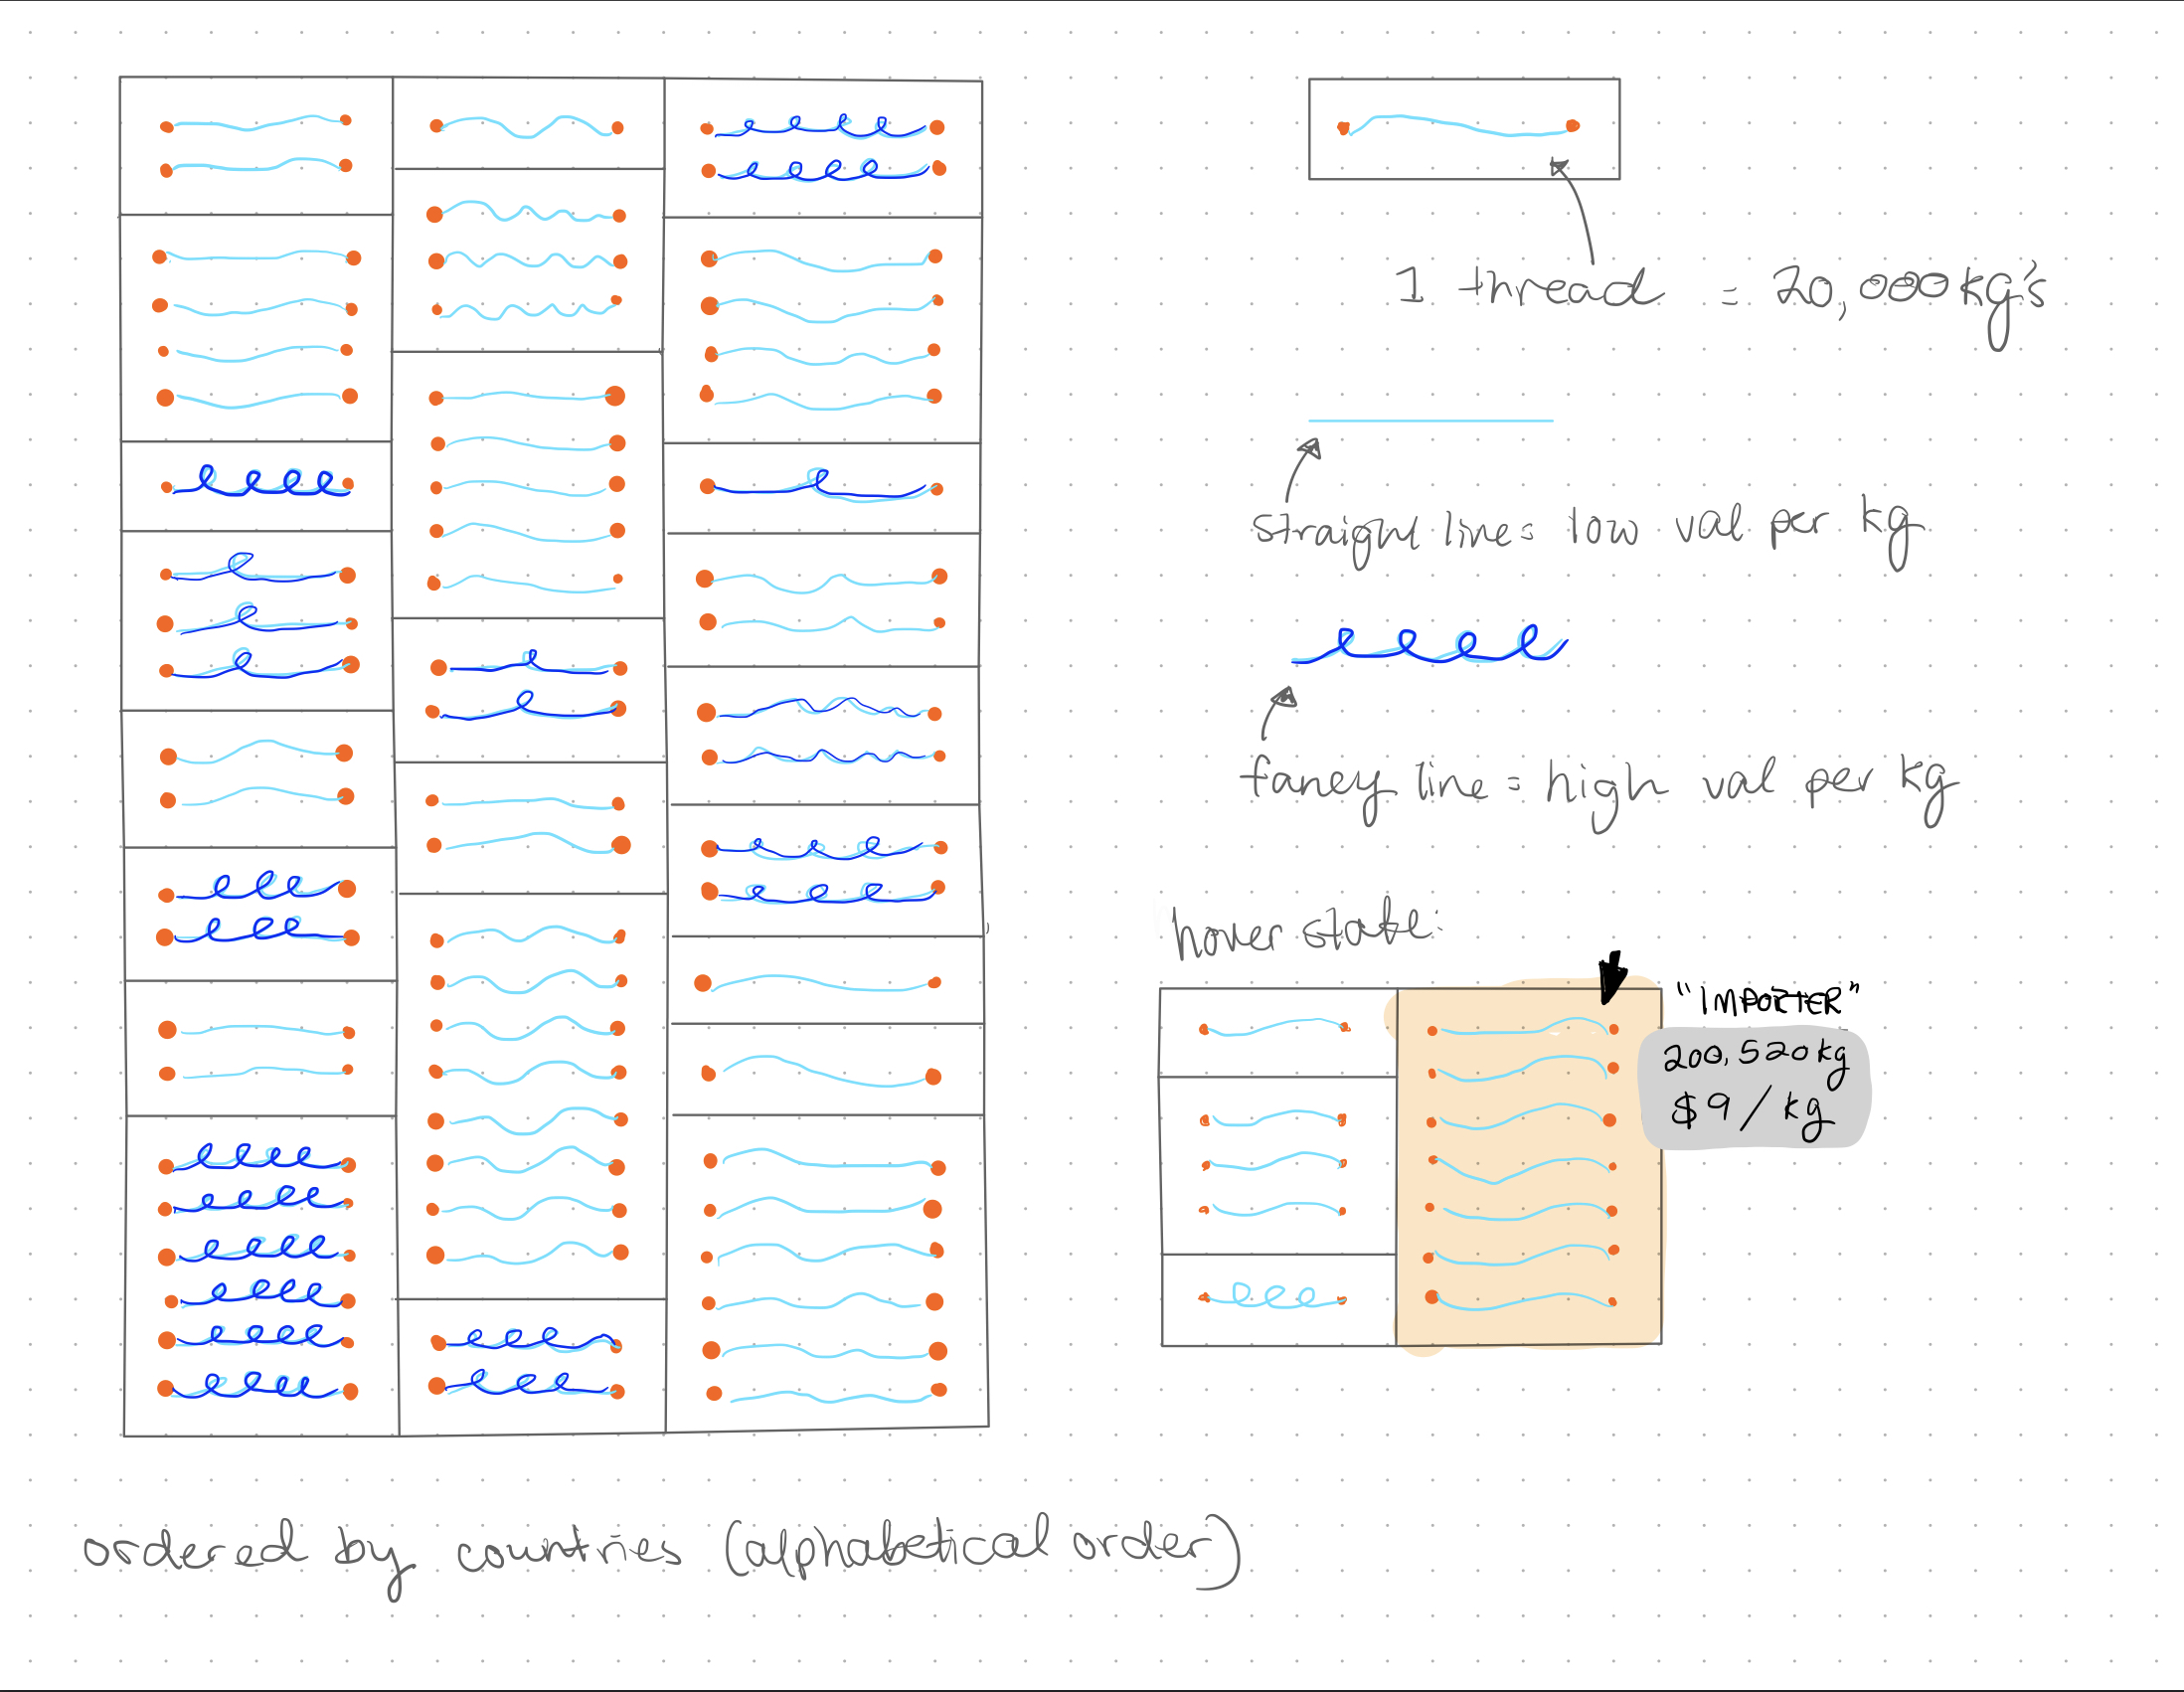 1 thread = 20,000 kg's
straight line = low val per kg
fancy line = high val per kg
hover state:
"IMPORTER"
200,520 kg
$9/kg
ordered by countries (alphabetical order)